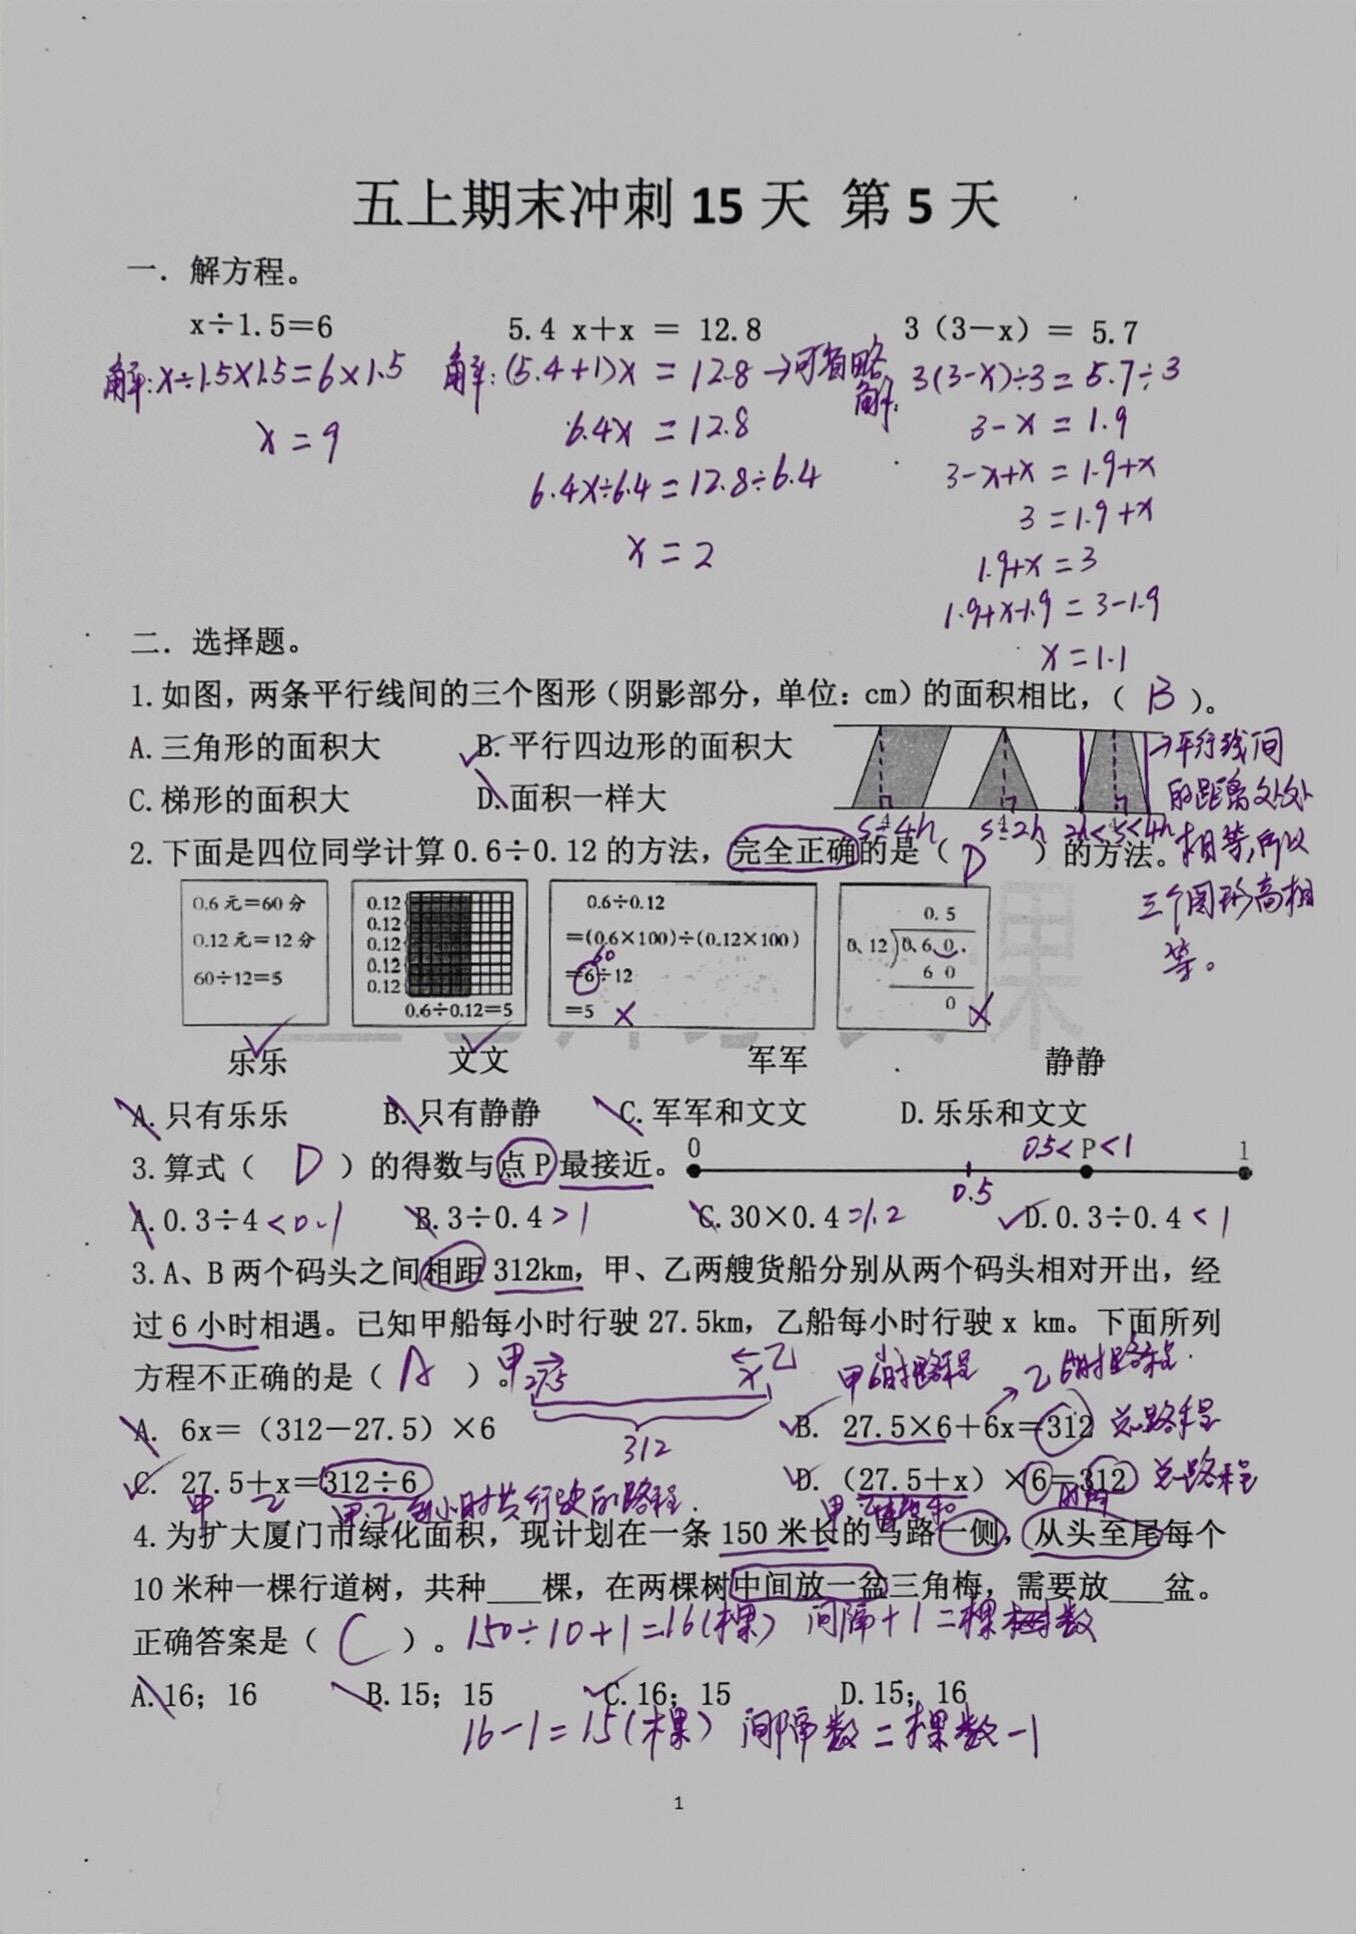 五上期末冲刺15天 第5天
一. 解方程。
x÷1.5=6 5.4 x+x = 12.8 3（3-x）= 5.7
解:x÷1.5×1.5=6×1.5 解:(5.4+1)x = 12.8→可省略 解:3(3-x)÷3=5.7÷3
x=9 6.4x = 12.8 3-x = 1.9
6.4x÷6.4=12.8÷6.4 3-x+x = 1.9+x
x = 2 3 = 1.9+x
1.9+x = 3
1.9+x-1.9 = 3-1.9
x=1.1
二. 选择题。
1.如图，两条平行线间的三个图形（阴影部分，单位：cm）的面积相比，（ B ）。
A.三角形的面积大 B.平行四边形的面积大
C.梯形的面积大 D.面积一样大
→平行线间
的距离处处
相等,所以
三个图形高相
等。
4 4 4
S=4h S=2h 2h<S<4h
2.下面是四位同学计算0.6÷0.12的方法，完全正确的是（ D ）的方法。
0.6元=60分
0.12元=12分
60÷12=5
0.12
0.12
0.12
0.12
0.12
0.6÷0.12=5
0.6÷0.12
=(0.6×100)÷(0.12×100)
60
=6÷12
=5 ×
0.5
0.12 0.60.
60
0 ×
乐乐 文文 军军 静静
A.只有乐乐 B.只有静静 C.军军和文文 D.乐乐和文文
3.算式（ D ）的得数与点P最接近。 0 0.5< P <1 1
0.5
A.0.3÷4<0.1 B.3÷0.4>1 C.30×0.4=1.2 D.0.3÷0.4<1
3.A、B两个码头之间相距312km，甲、乙两艘货船分别从两个码头相对开出，经
过6小时相遇。已知甲船每小时行驶27.5km，乙船每小时行驶x km。下面所列
方程不正确的是（ A ）。甲→ 27.5 ←乙 x 甲6时路程 乙6时路程
A. 6x=（312-27.5）×6 312 B. 27.5×6+6x=312 总路程
C. 27.5+x=312÷6 D.（27.5+x）×6=312 总路程
甲 乙 甲、乙每小时共行驶的路程. 时间
4.为扩大厦门市绿化面积，现计划在一条150米长的马路一侧，从头至尾每个
10米种一棵行道树，共种___棵，在两棵树中间放一盆三角梅，需要放___盆。
正确答案是（ C ）。150÷10+1=16(棵) 间隔+1=棵数
A.16；16 B.15；15 C.16；15 D.15；16
16-1=15(棵) 间隔数=棵数-1
1